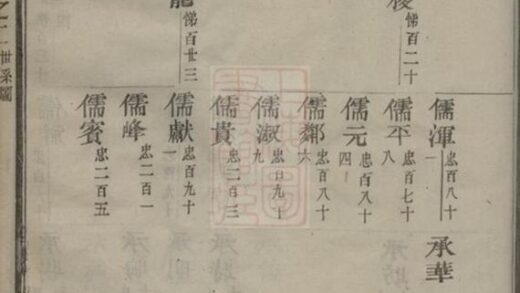 悌百二十
悌百廿三
儒渾 忠百八十一 承華
儒平 忠百七十八
儒元 忠百八十四
儒 忠百八十六
儒淑 忠百九十九
儒貴 忠二百三
儒獻 忠百九十一
儒峰 忠二百一
儒賓 忠二百五
世系圖